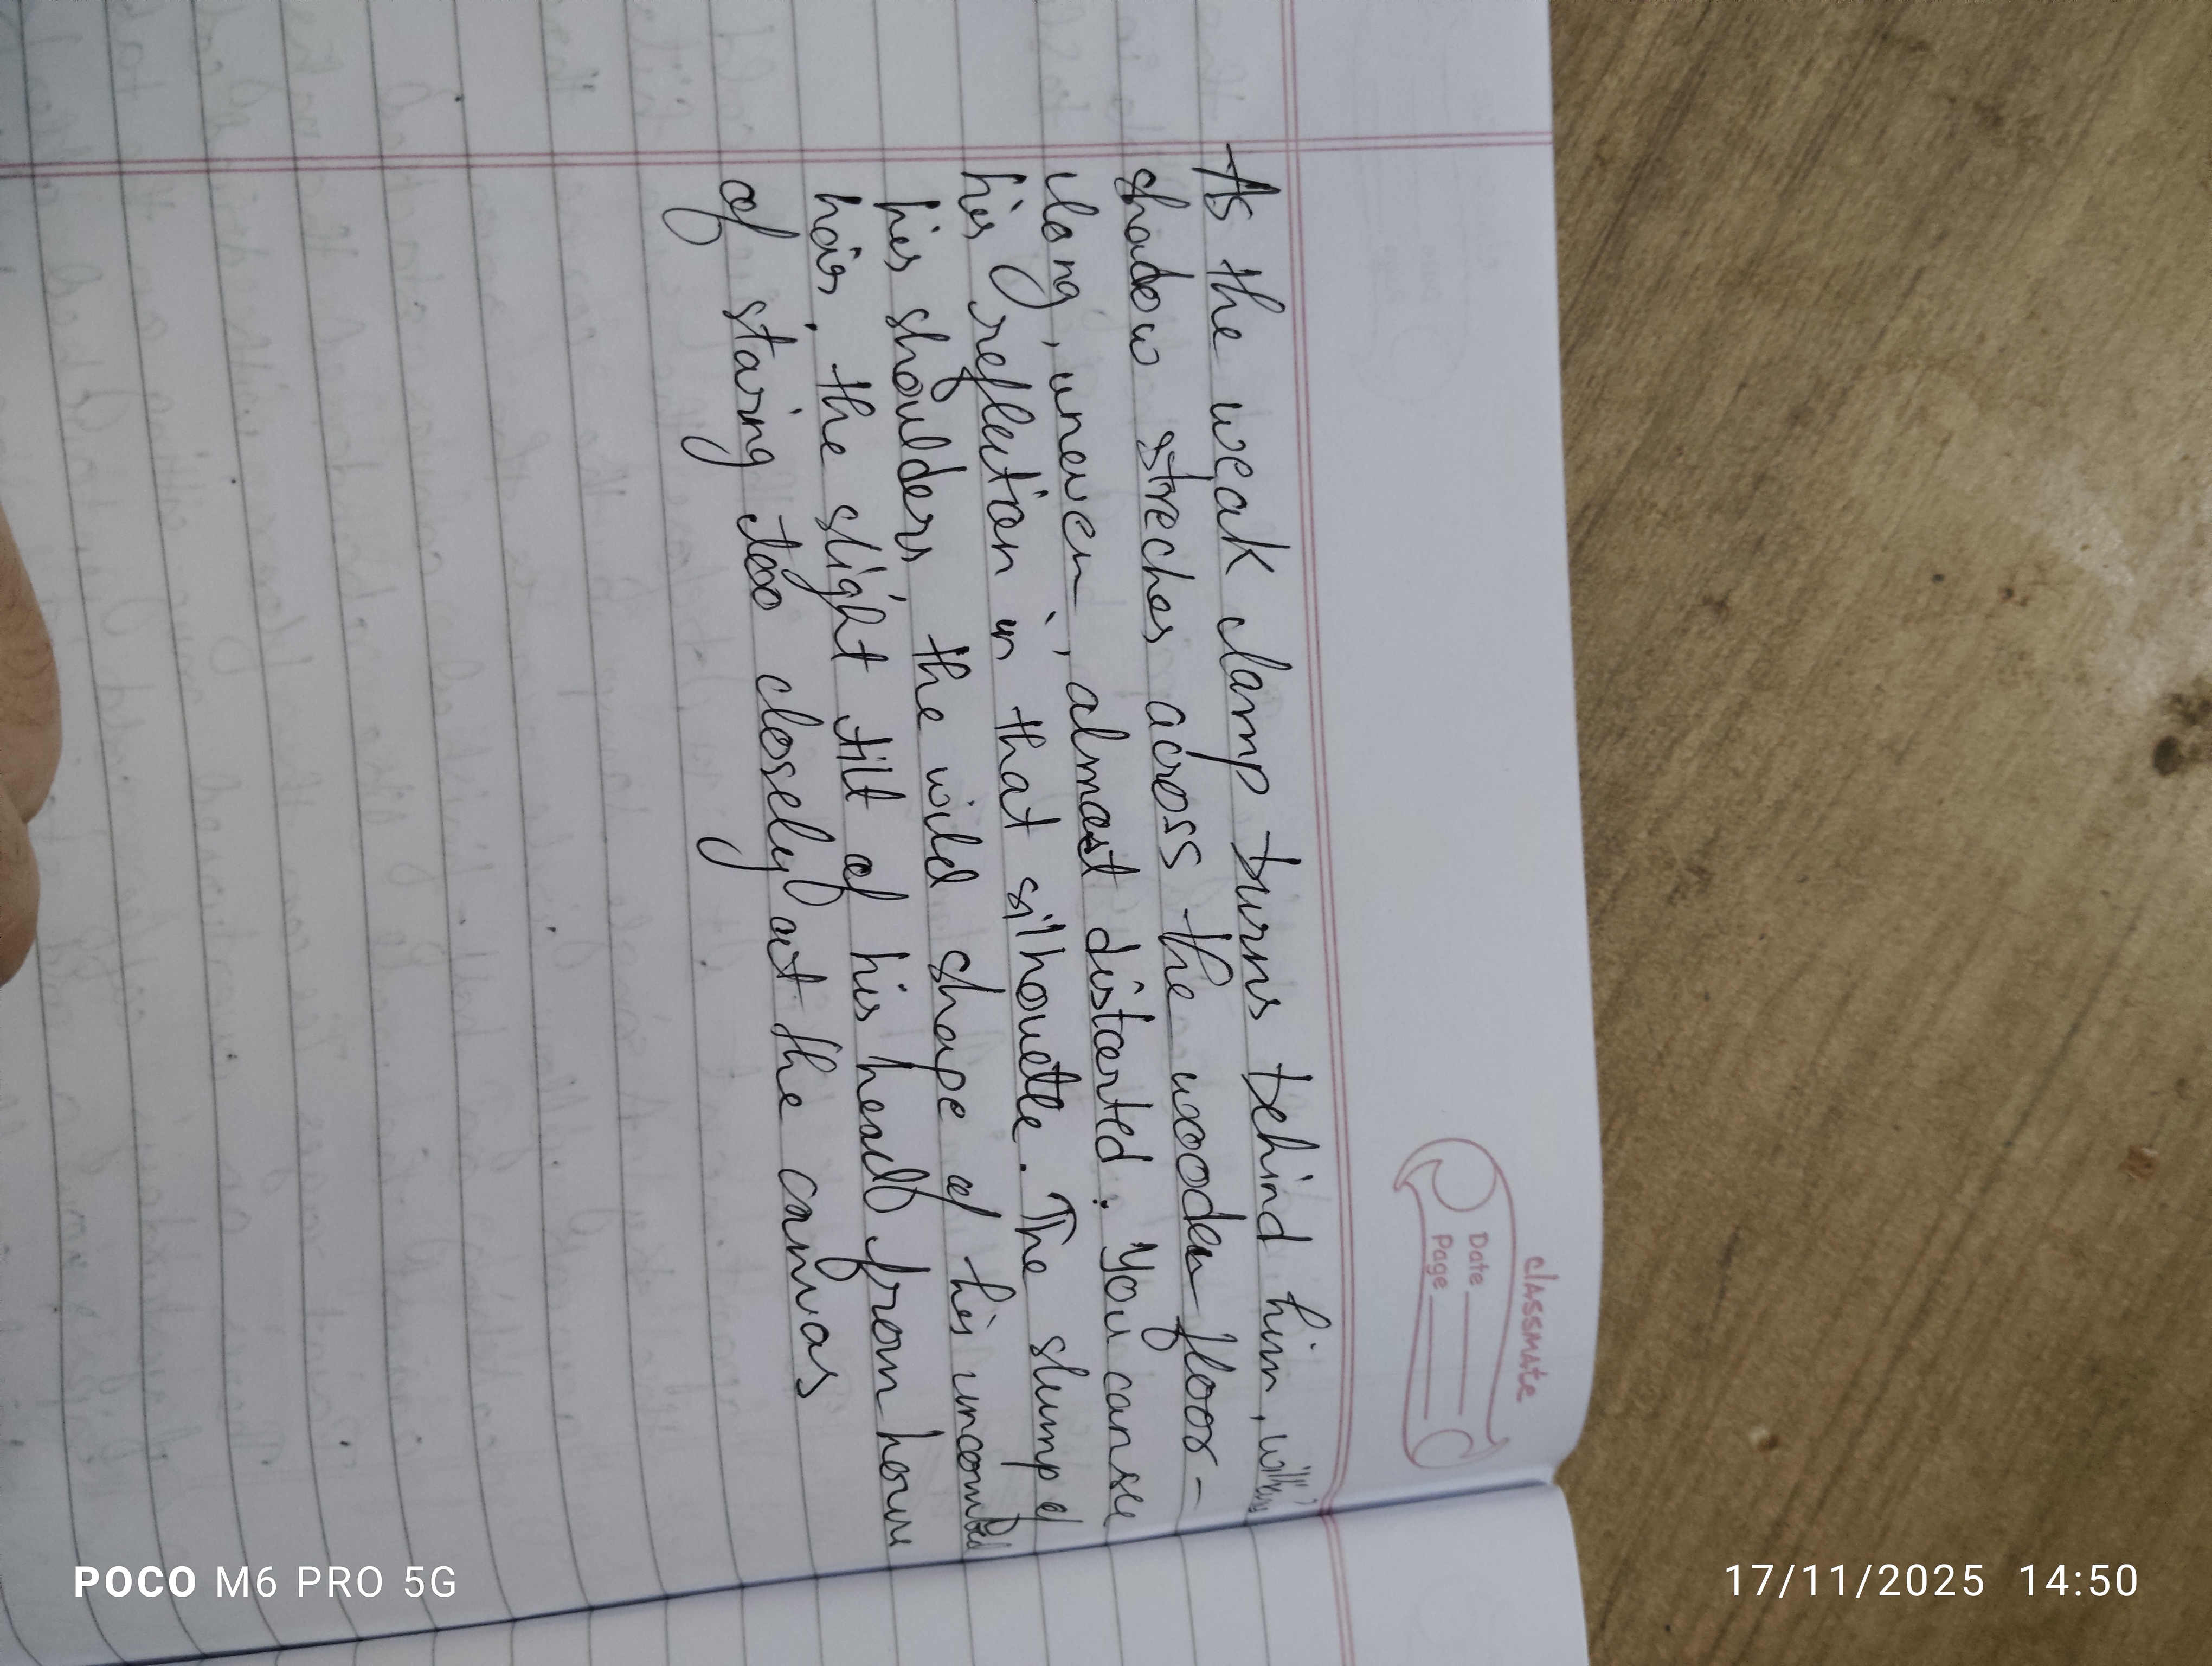 classmate
Date
Page
As the weak lamp turns behind him,
shadow streches across the wooden floor-
long, uneven, almost distorted. You can see
his reflection in that silhouette. The slump of
his shoulders the wild shape of his uncombed
hair, the slight tilt of his head from hours
of staring too closely at the canvas
POCO M6 PRO 5G
17/11/2025 14:50